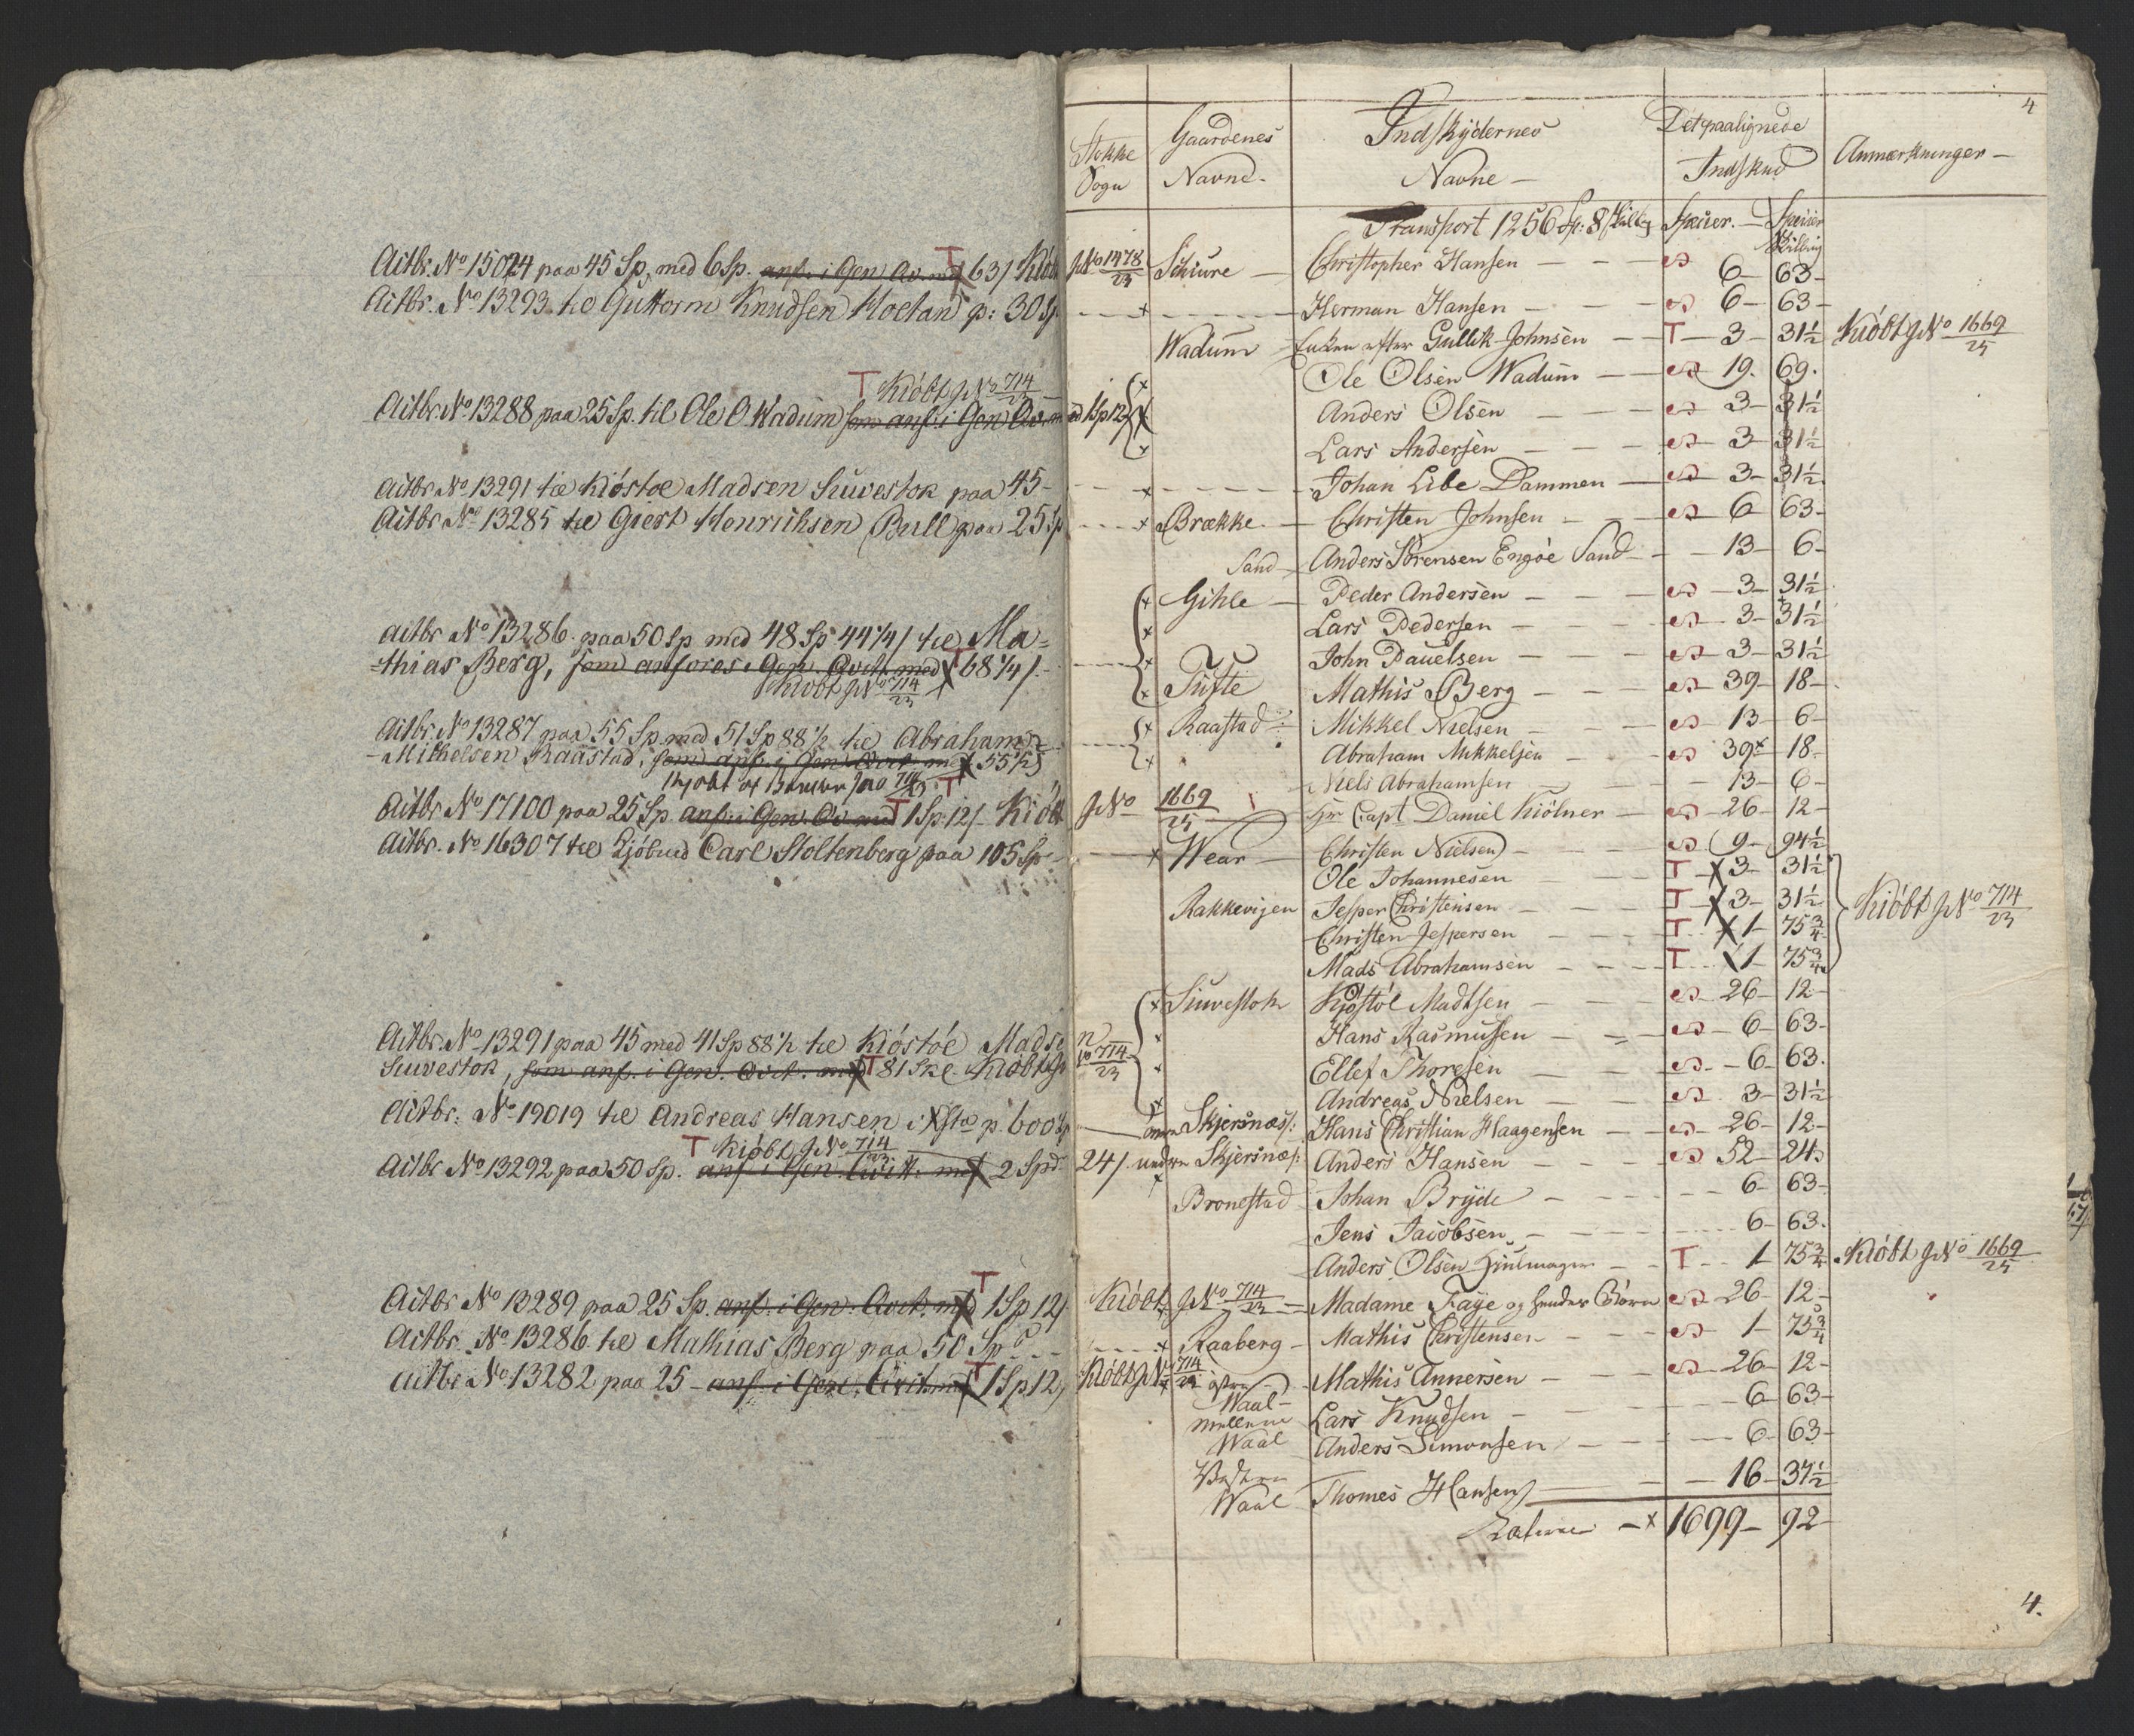 Actbr. No 15024 paa 45 Sp, med 6 Sp. anf. i Gen Qv. med T 63/ Kiöbt
Actbr. No 13293 til Guttorm Knudsen Hoetan p: 30 Sp
T Kiöbt J No 714/23
Actbr No 13288 paa 25 Sp. til Ole O. Wadum som anf. i Gen Qv. med 1 Sp 12/
Actbr No 13291 til Kiöstoe Madsen Siuvestok paa 45 -
Actbr No 13285 til Giert Henrichsen Bull paa 25 Sp
Actbr No 13286 paa 50 Sp med 48 Sp 44 1/4/ til Ma=
=thias Berg, som anföres i Gen. Qvit. med T 68 1/4/.
Kiöbt J No 714/23
Actbr. No 13287 paa 55 Sp med 51 Sp 88 1/2 til Abraham
-Mikkelsen Raastad, som anf. i Gen. Qvit. m 55 1/2
Kjøbt af Banken J No 714/23 T
Actbr No 17100 paa 25 Sp. anf. i Gen. Qv. med T 1 Sp. 12/ Kiöbt
Actbr. No 16307 til Carl Stoltenberg paa 105 Sp
Actbr. No 13291 paa 45 med 41 Sp 88 1/2 til Kiöstöe Madsen
Siuvestok, som anf. i Gen. Qvit. med T 81 Sk. Kiöbt J No 714/23
Actbr: No 19019 til Andreas Hansen i p. 600 Sp
T Kiöbt J No 714/23
Actbr No 13292 paa 50 Sp. anf i Gen. Qvitt. med 2 Spd 24/
Actbr No 13289 paa 25 Sp. anf. i Gen. Qvit. med T 1 Sp 12/ Kiöbt J No 714/23
Actbr. No 13286 til Mathias Berg paa 50 Sp
Actbr No 13282 paa 25 - anf. i Gen. Qvit. med T 1 Sp 12/ Kiöbt J No 714/23
4
Stokke Sogn | Gaardenes Navne - | Indskydernes Navne - | Det paalignede Indskud | Anmærkninger -
Transport 1256 Sp: 8 Skilling | Specier. - Specier Skilling
J No 1478/23 Schiure - Christopher Hansen - 6 - 63 -
Herman Hansen - 6 - 63 -
Wadum - Enken efter Gullik Johnsen - T - 3 - 31 1/2 Kiöbt J No 1669/25
Ole Olsen Wadum - 19. 69.
Anders Olsen - 3 - 31 1/2
Lars Andersen - 3 - 31 1/2
Johan Libe Dammen - 3 - 31 1/2
Brække - Christen Johnsen - 6 - 63 -
Sand - Anders Sörensen Engöe Sand - 13 - 6 -
Gihle - Peder Andersen - 3 - 31 1/2
Lars Pedersen - 3 - 31 1/2
John Pauelsen - 3 - 31 1/2
Tufte Mathis Berg - 39 - 18 -
Raastad - Mikkel Nielsen - 13 - 6 -
Abraham Mikkelsen - 39 - 18 -
Niels Abrahamsen - 13 - 6 -
J No 1669/25 Hr Capt Daniel Kiölner - 26 - 12 -
Wear - Christen Nielsen - 9 - 94 1/2
Ole Johannesen T X 3 - 31 1/2
Rakkevigen Jesper Christensen - T X 3 - 31 1/2 Kiöbt J No 714/23
Christen Jespersen - T X 1 - 75 3/4
Mads Abrahamsen - T X 1 - 75 3/4
Siuvestok Kjøstöl Madtsen - 26 - 12 -
Hans Rasmussen - 6 - 63 -
Ellef Thoresen - 6 - 63.
Andreas Nielsen - 3 - 31 1/2
Skjersnæs: Hans Christian Haagensen - 26 - 12 -
undre Skjersnæs: Anders Hansen - 52 - 24.
Bronestad Johan Bryde - 6 - 63 -
Jens Jacobsen - 6 - 63.
Anders Olsen Hiulmager - T 1 75 3/4 Kiöbt J No 1669/25
Madame Faye og hendes Börn 26 - 12 -
Raaberg - Mathis Christensen - 1 - 75 3/4
östre Waal - Mathis Annersen - 26 - 12 -
mellem Waal Lars Knudsen - 6 - 63 -
Anders Simonsen - 6 - 63 -
Westre Waal Thomes Hansen - 16 - 37 1/2
Latus - x 1699 - 92 -
4.